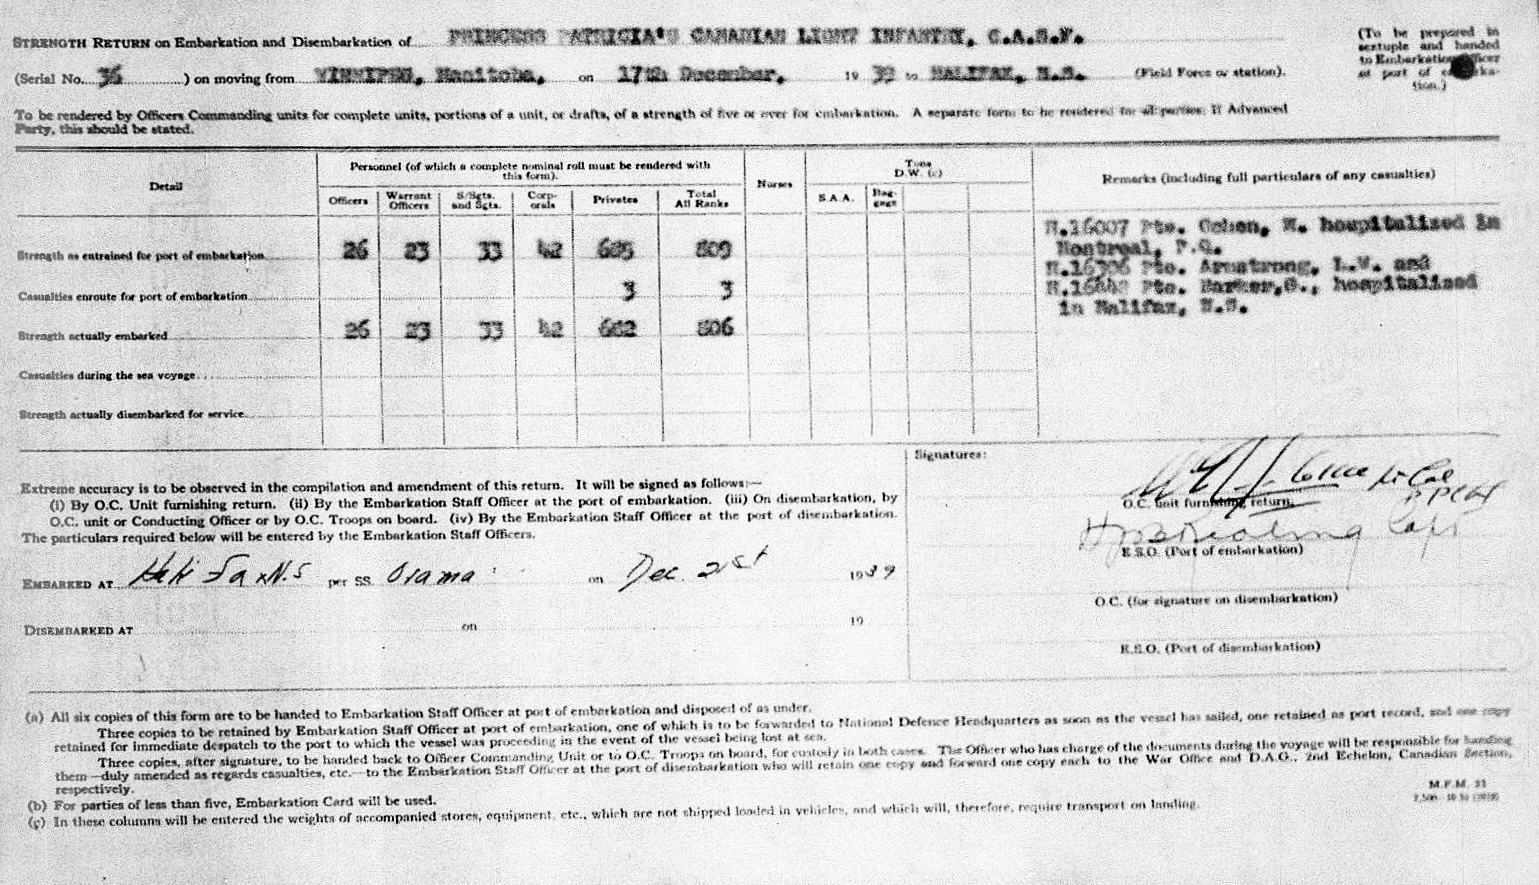 STRENGTH RETURN on Embarkation and Disembarkation of PRINCESS PATRICIA'S CANADIAN LIGHT INFANTRY, C.A.S.F.
(To be prepared in sextuple and handed to Embarkation Officer as part of embarkation.)
(Serial No. 36 ) on moving from WINNIPEG, Manitoba, on 17th December, 19 39 to HALIFAX, N.S. (Field Force or station).
To be rendered by Officers Commanding units for complete units, portions of a unit, or drafts, of a strength of five or over for embarkation. A separate form to be rendered for all parties; If Advanced
Party, this should be stated.
Detail
Personnel (of which a complete nominal roll must be rendered with
this form).
Nurses
Tons
D.W. (c)
Remarks (including full particulars of any casualties)
Officers Warrant Officers S/Sgts. and Sgts. Corporals Privates Total All Ranks S.A.A. Baggage
Strength as entrained for port of embarkation 26 23 33 42 685 809
Casualties enroute for port of embarkation 3 3
Strength actually embarked 26 23 33 42 682 806
Casualties during the sea voyage
Strength actually disembarked for service
H.16007 Pte. Cohen, M. hospitalized in
Montreal, P.Q.
Pte. Armstrong, L.W. and
Pte. Barker, G., hospitalized
in Halifax, N.S.
Extreme accuracy is to be observed in the compilation and amendment of this return. It will be signed as follows:—
(i) By O.C. Unit furnishing return. (ii) By the Embarkation Staff Officer at the port of embarkation. (iii) On disembarkation, by
O.C. unit or Conducting Officer or by O.C. Troops on board. (iv) By the Embarkation Staff Officer at the port of disembarkation.
The particulars required below will be entered by the Embarkation Staff Officers.
EMBARKED AT Halifax N.S per SS. Orama on Dec. 21st 1939
DISEMBARKED AT on 19
Signatures:
Lt Col
PPCLI
O.C. unit furnishing return.
Capt
E.S.O. (Port of embarkation)
O.C. (for signature on disembarkation)
E.S.O. (Port of disembarkation)
(a) All six copies of this form are to be handed to Embarkation Staff Officer at port of embarkation and disposed of as under.
Three copies to be retained by Embarkation Staff Officer at port of embarkation, one of which is to be forwarded to National Defence Headquarters as soon as the vessel has sailed, one retained as port record, and one copy
retained for immediate despatch to the port to which the vessel was proceeding in the event of the vessel being lost at sea.
Three copies, after signature, to be handed back to Officer Commanding Unit or to O.C. Troops on board, for custody in both cases. The Officer who has charge of the documents during the voyage will be responsible for handing
them—duly amended as regards casualties, etc.—to the Embarkation Staff Officer at the port of disembarkation who will retain one copy and forward one copy each to the War Office and D.A.G., 2nd Echelon, Canadian Section,
respectively.
(b) For parties of less than five, Embarkation Card will be used.
(c) In these columns will be entered the weights of accompanied stores, equipment, etc., which are not shipped loaded in vehicles, and which will, therefore, require transport on landing.
M.F.M. 23